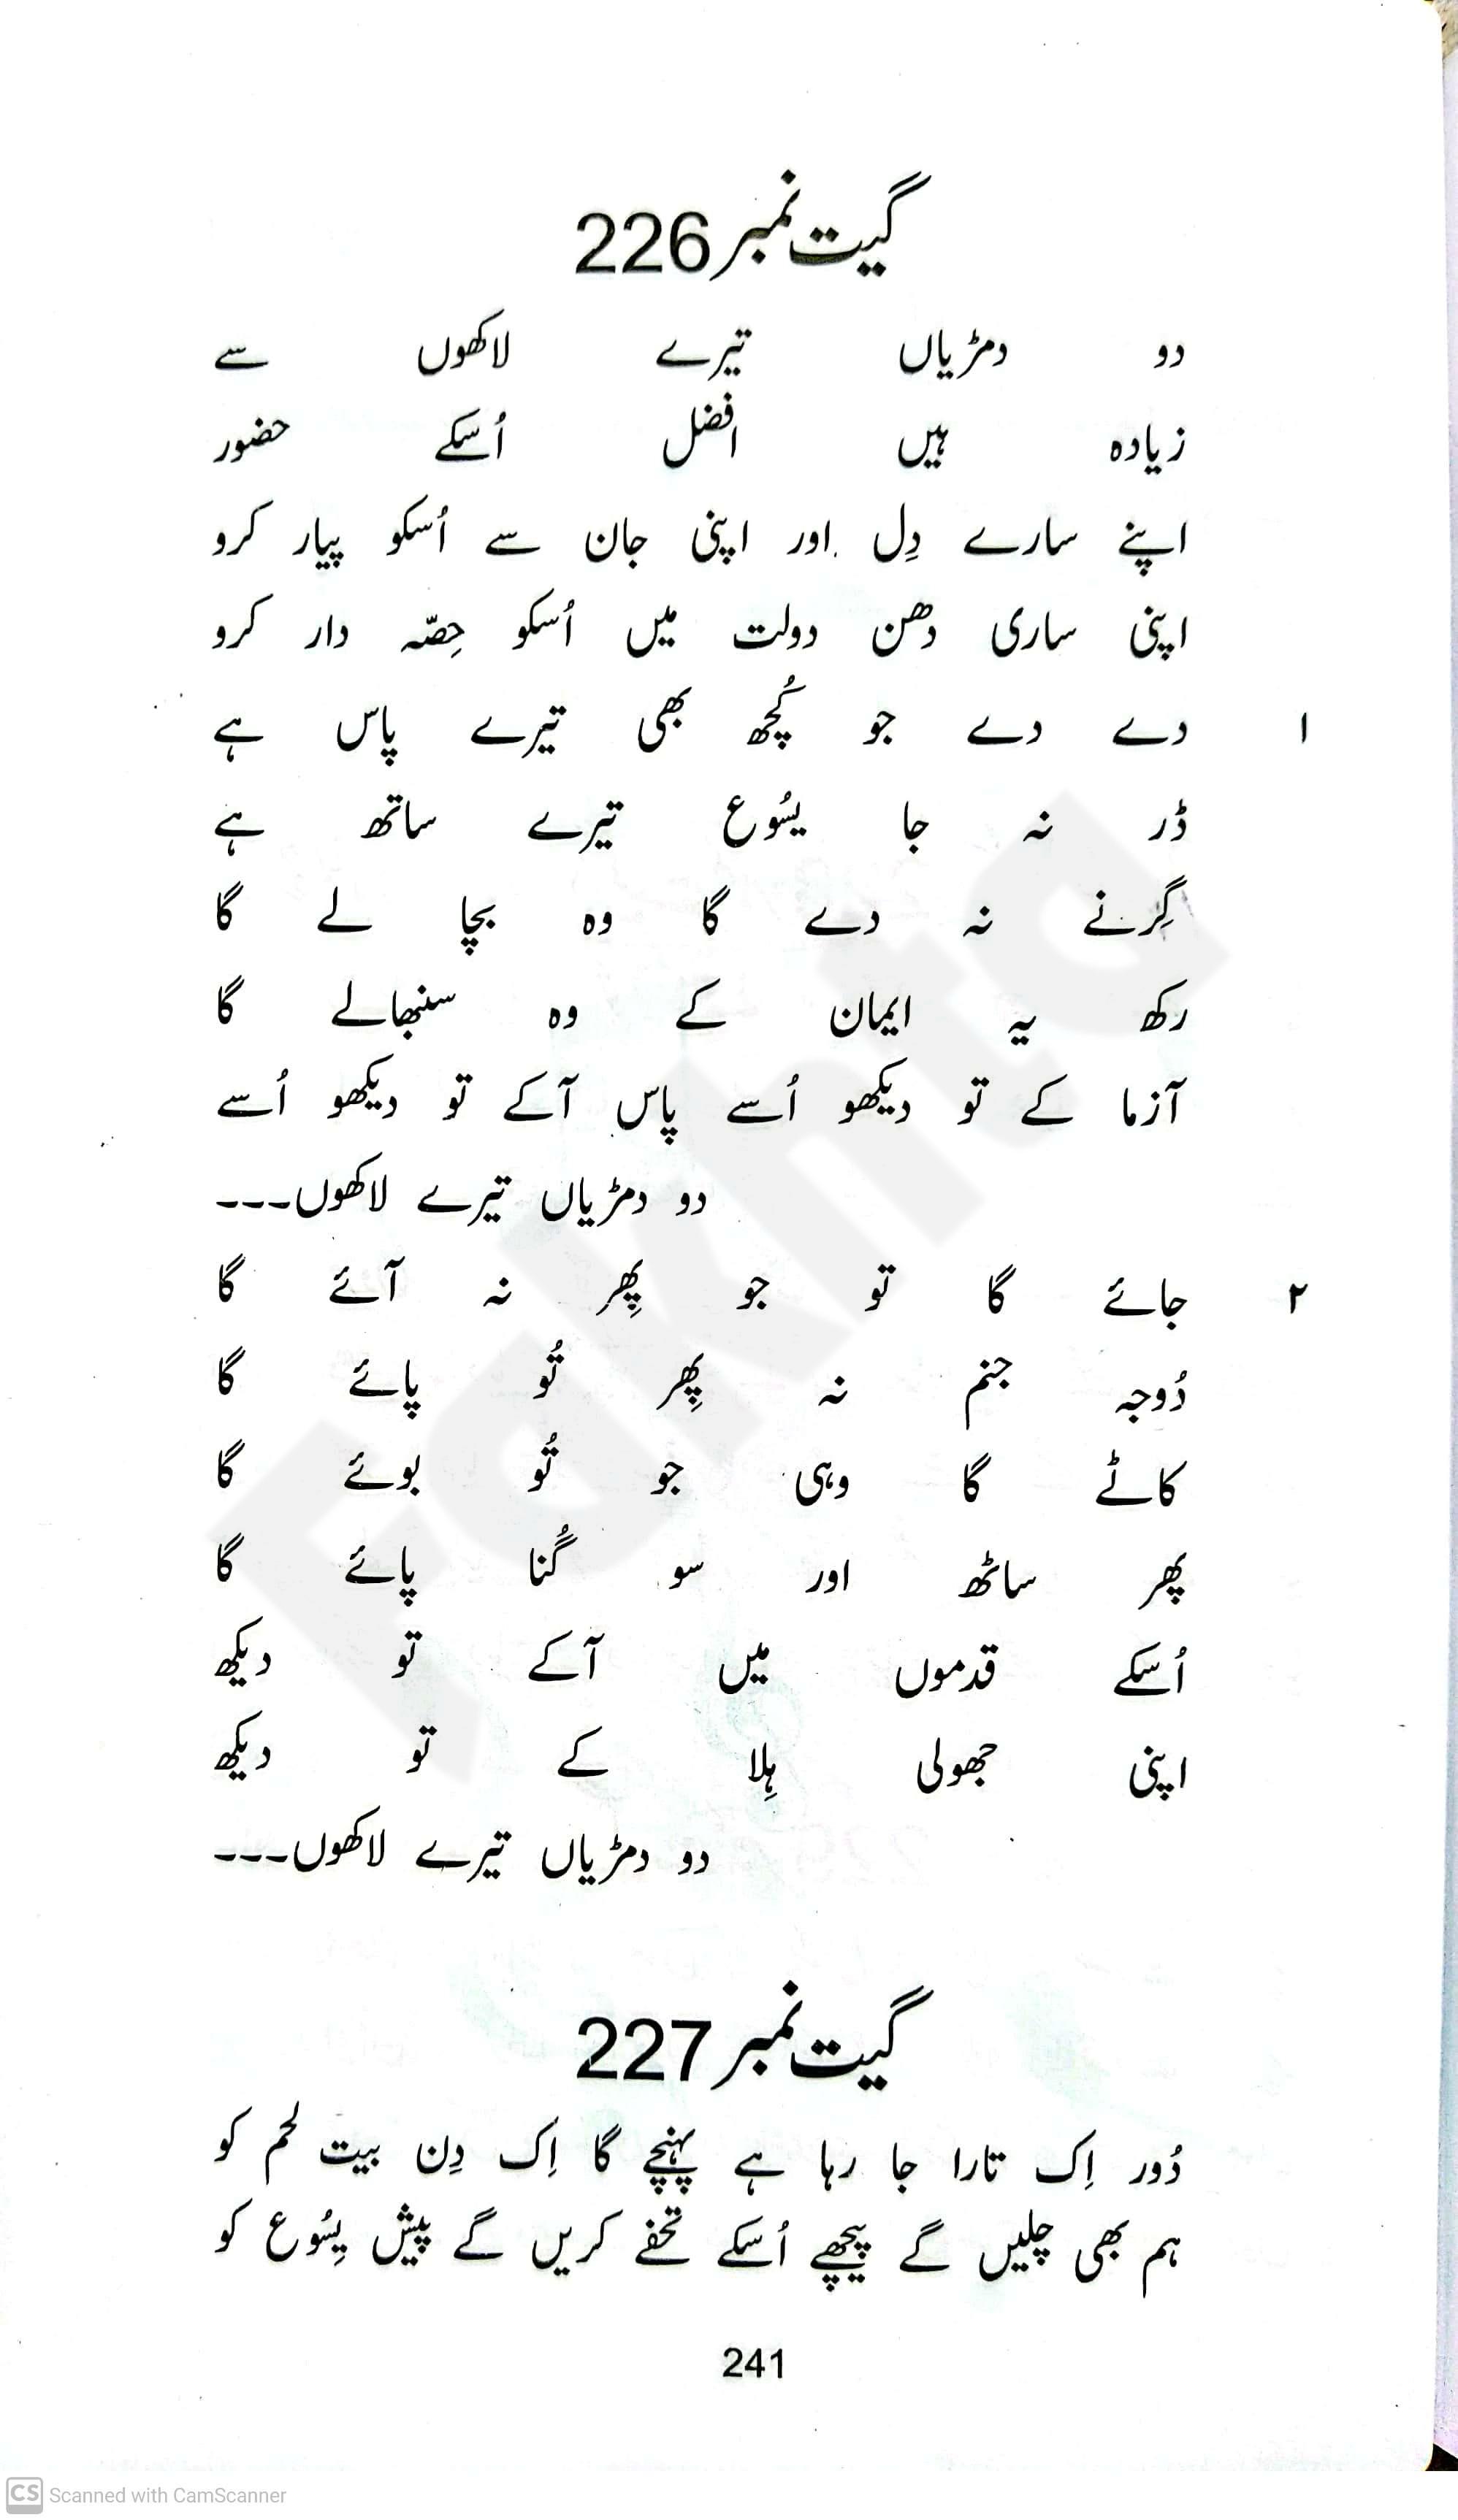 گیت نمبر 226
دو دمڑیاں تیرے لاکھوں سے
زیادہ ہیں افضل اُسکے حضور
اپنے سارے دِل اور اپنی جان سے اُسکو پیار کرو
اپنی ساری دھن دولت میں اُسکو حِصّہ دار کرو
۱ دے دے جو کُچھ بھی تیرے پاس ہے
ڈر نہ جا یسُوع تیرے ساتھ ہے
گِرنے نہ دے گا وہ بچا لے گا
رکھ یہ ایمان کے وہ سنبھالے گا
آزما کے تو دیکھو اُسے پاس آکے تو دیکھو اُسے
دو دمڑیاں تیرے لاکھوں۔۔۔
۲ جائے گا تو جو پھِر نہ آئے گا
دُوجہ جنم نہ پھِر تُو پائے گا
کاٹے گا وہی جو تُو بوئے گا
پھر ساٹھ اور سو گُنا پائے گا
اُسکے قدموں میں آکے تو دیکھ
اپنی جھولی ہِلا کے تو دیکھ
دو دمڑیاں تیرے لاکھوں۔۔۔
گیت نمبر 227
دُور اِک تارا جا رہا ہے پہنچے گا اِک دِن بیت لحم کو
ہم بھی چلیں گے پیچھے اُسکے تحفے کریں گے پیش یِسُوع کو
241
Fakhta
CS Scanned with CamScanner